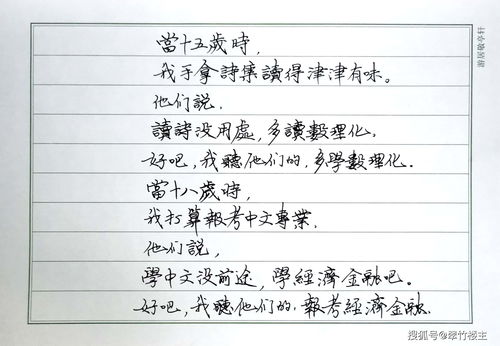 當十五歲時,
我手拿詩集讀得津津有味。
他们説,
讀詩没用處,多讀數理化,
好吧,我聽他们的,多學數理化.
當十八歲時,
我打算報考中文專業,
他们説,
學中文没前途,學經濟金融吧。
好吧,我聽他们的,報考經濟金融.
游居敬亭轩
搜狐号@翠竹楼主